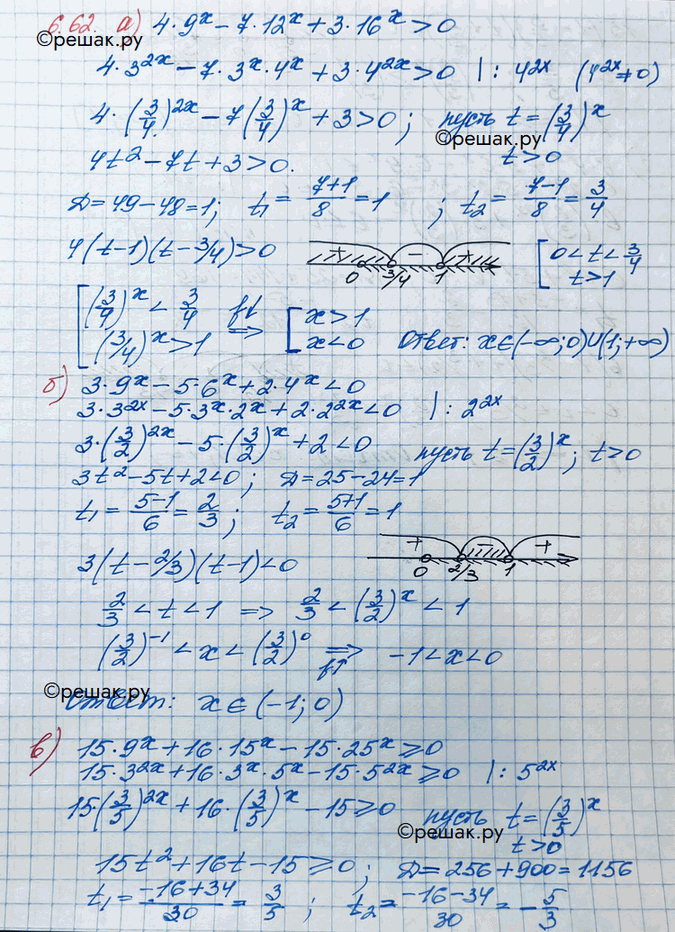 6.62. а) 4·9^x − 7·12^x + 3·16^x > 0
©решак.ру
4·3^{2x} − 7·3^x·4^x + 3·4^{2x} > 0 | : 4^{2x} (4^{2x} ≠ 0)
4·(3/4)^{2x} − 7(3/4)^x + 3 > 0; пусть t = (3/4)^x
©решак.ру
4t² − 7t + 3 > 0. t > 0
D = 49 − 48 = 1; t₁ = (7+1)/8 = 1 ; t₂ = (7−1)/8 = 3/4
4(t−1)(t−3/4) > 0 + − + 0 3/4 1 [ 0 < t < 3/4
t > 1
[ (3/4)^x < 3/4 f↓ ⇒ [ x > 1
(3/4)^x > 1 x < 0 Ответ: x∈(−∞; 0)∪(1; +∞)
б) 3·9^x − 5·6^x + 2·4^x < 0
3·3^{2x} − 5·3^x·2^x + 2·2^{2x} < 0 | : 2^{2x}
3·(3/2)^{2x} − 5·(3/2)^x + 2 < 0 пусть t = (3/2)^x; t > 0
3t² − 5t + 2 < 0; D = 25 − 24 = 1
t₁ = (5−1)/6 = 2/3; t₂ = (5+1)/6 = 1
3(t − 2/3)(t−1) < 0 + − + 0 2/3 1
2/3 < t < 1 ⇒ 2/3 < (3/2)^x < 1
(3/2)^{−1} < x < (3/2)^0 ⇒ f↑ −1 < x < 0
©решак.ру
Ответ: x ∈ (−1; 0)
в) 15·9^x + 16·15^x − 15·25^x ⩾ 0
15·3^{2x} + 16·3^x·5^x − 15·5^{2x} ⩾ 0 | : 5^{2x}
15·(3/5)^{2x} + 16·(3/5)^x − 15 ⩾ 0 пусть t = (3/5)^x
©решак.ру
t > 0
15t² + 16t − 15 ⩾ 0; D = 256 + 900 = 1156
t₁ = (−16+34)/30 = 3/5 ; t₂ = (−16−34)/30 = −5/3